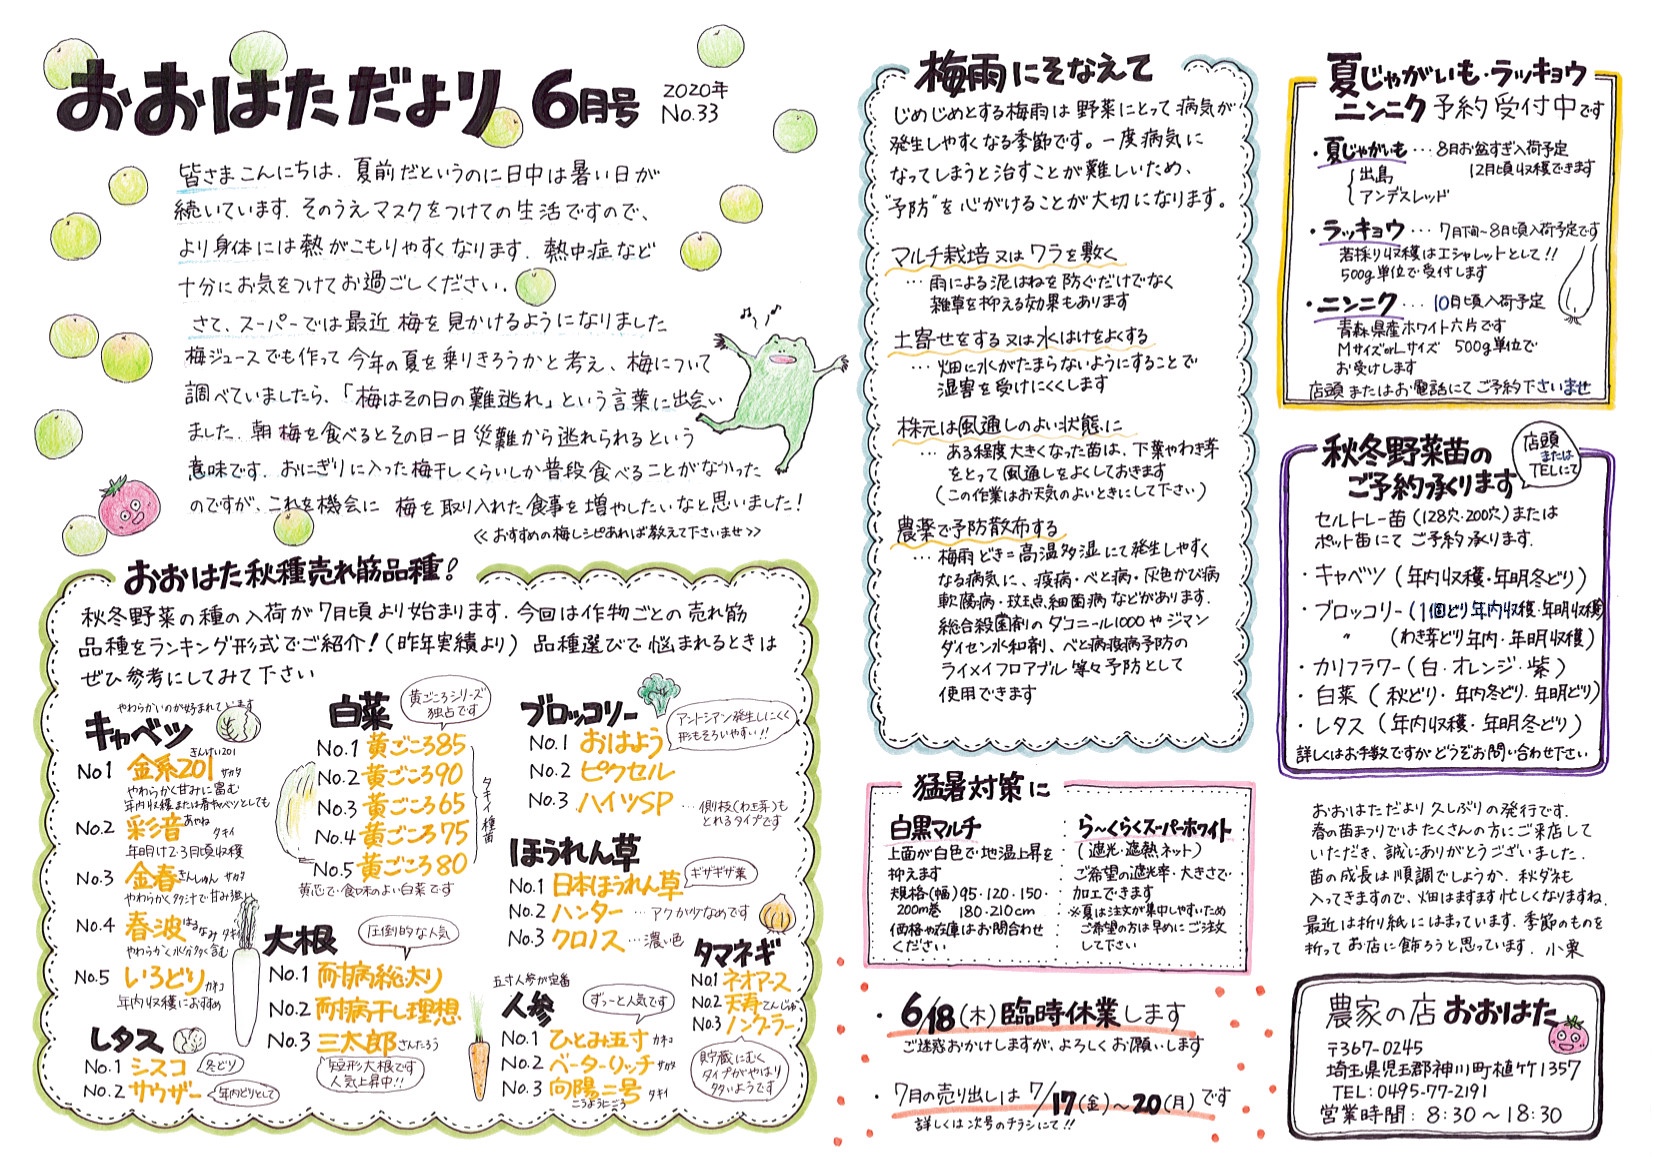 おおはただより 6月号 2020年 No.33
皆さまこんにちは、夏前だというのに日中は暑い日が
続いています。そのうえマスクをつけての生活ですので、
より身体には熱がこもりやすくなります。熱中症など
十分にお気をつけてお過ごしください。
さて、スーパーでは最近 梅を見かけるようになりました
梅ジュースでも作って 今年の夏を乗りきろうかと考え、梅について
調べていましたら、「梅はその日の難逃れ」という言葉に出会い
ました。朝 梅を食べるとその日一日 災難から逃れられるという
意味です。おにぎりに入った梅干しくらいしか普段食べることがなかった
のですが、これを機会に 梅を取り入れた食事を増やしたいなと思いました!
<<おすすめの梅レシピあれば教えて下さいませ>>
おおはた秋種売れ筋品種!
秋冬野菜の種の入荷が7月頃より始まります。今回は作物ごとの売れ筋
品種をランキング形式でご紹介!(昨年実績より) 品種選びで悩まれるときは
ぜひ参考にしてみて下さい
やわらかいのが好まれています
キャベツ
きんけい201
No1 金系201 サカタ
やわらかく甘みに富む
年内収穫または春キャベツとしても
No.2 彩音 あやね タキイ
年明け2・3月頃収穫
No.3 金春 きんしゅん サカタ
やわらかくタクミで甘み強
No.4 春波 はるなみ タキイ
やわらかく水分多く含む
No.5 いろどり カネコ
年内収穫におすすめ
レタス
No.1 シスコ 冬どり
No.2 サウザー 年内どりとして
白菜
黄ごころシリーズ
独占です
No.1 黄ごころ85
No.2 黄ごころ90
No.3 黄ごころ65
No.4 黄ごころ75
No.5 黄ごころ80
タキイ種苗
黄芯で食味のよい白菜です
大根
圧倒的な人気
No.1 耐病総太り
No.2 耐病干し理想
No.3 三太郎 さんたろう
短形大根です
人気上昇中!!
ブロッコリー
アントシアン発生しにくく
形もそろいやすい!!
No.1 おはよう
No.2 ピクセル
No.3 ハイツSP …側枝(わき芽)も
とれるタイプです
ほうれん草
No.1 日本ほうれん草 ギザギザ葉
No.2 ハンター …アクが少なめです
No.3 クロノス …濃い色
五寸人参が定番
人参
ずっーと人気です
No.1 ひとみ五寸 カネコ
No.2 ベーターリッチ サカタ
No.3 向陽二号 タキイ
こうようにごう
タマネギ
No1 ネオアース
No.2 天寿 てんじゅ
No.3 ノンクーラー
貯蔵にむく
タイプがやはり
多いようです
梅雨にそなえて
じめじめとする梅雨は 野菜にとって 病気が
発生しやすくなる季節です。一度 病気に
なってしまうと治すことが難しいため、
"予防"を心がけることが大切になります。
マルチ栽培 又は ワラを敷く
…雨による泥はねを防ぐだけでなく
雑草を抑える効果もあります
土寄せをする又は水はけをよくする
…畑に水がたまらないようにすることで
湿害を受けにくくします
株元は風通しのよい状態に
…ある程度大きくなった苗は、下葉やわき芽
をとって風通しをよくしておきます
(この作業はお天気のよいときにして下さい)
農薬で予防散布する
…梅雨どき=高温多湿にて発生しやすく
なる病気に、疫病・べと病・灰色かび病
軟腐病・斑点細菌病などがあります。
総合殺菌剤のダコニール1000やジマン
ダイセン水和剤、べと病疫病予防の
ライメイフロアブル等々予防として
使用できます
猛暑対策に
白黒マルチ
上面が白色で地温上昇を
抑えます
規格(幅)95・120・150・
200m巻 180・210cm
価格や在庫はお問合わせ
ください
ら〜くらくスーパーホワイト
(遮光・遮熱ネット)
ご希望の遮光率・大きさで
加工できます
※夏は注文が集中しやすいため
ご希望の方は早めにご注文
して下さい
・6/18(木)臨時休業します
ご迷惑おかけしますが、よろしくお願いします
・7月の売り出しは 7/17(金)〜20(月)です
詳しくは次号のチラシにて!!
夏じゃがいも・ラッキョウ
ニンニク 予約受付中です
・夏じゃがいも…8月お盆すぎ入荷予定
12月頃収穫できます
出島
アンデスレッド
・ラッキョウ…7月下旬〜8月頃入荷予定です
若採り収穫はエシャレットとして!!
500g単位で受付します
・ニンニク…10月頃入荷予定
青森県産ホワイト六片です
MサイズorLサイズ 500g単位で
お受けします
店頭またはお電話にてご予約下さいませ
秋冬野菜苗の
ご予約承ります
店頭
または
TELにて
セルトレー苗(128穴・200穴)または
ポット苗にてご予約承ります。
・キャベツ(年内収穫・年明冬どり)
・ブロッコリー(1個どり年内収穫・年明収穫)
〃 (わき芽どり年内・年明収穫)
・カリフラワー(白・オレンジ・紫)
・白菜(秋どり・年内冬どり・年明どり)
・レタス(年内収穫・年明冬どり)
詳しくはお手数ですがどうぞお問い合わせ下さい
おおはただより 久しぶりの発行です。
春の苗まつりではたくさんの方にご来店して
いただき、誠にありがとうございました。
苗の成長は順調でしょうか。秋ダネも
入ってきますので、畑はますます忙しくなりますね。
最近は折り紙にはまっています。季節のものを
折ってお店に飾ろうと思っています。小栗
農家の店 おおはた
〒367-0245
埼玉県児玉郡神川町植竹1357
TEL:0495-77-2191
営業時間:8:30〜18:30